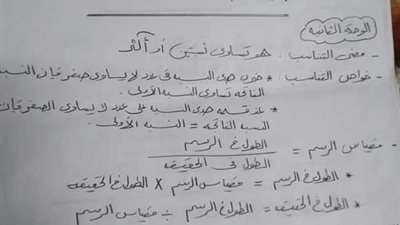 الوحدة الثانية
- معنى التناسب : هو تساوى نسبتين أو أكثر
- خواص التناسب : * ضرب حدى النسبه فى عدد لا يساوى صفر فإن النسبه
الناتجه تساوى النسبه الأولى .
* بقسمه حدى النسبه على عدد لا يساوى الصفر فإن
النسبه الناتجه = النسبه الأولى .
- مقياس الرسم = الطول فى الرسم
الطول فى الحقيقه
* الطول فى الرسم = مقياس الرسم × الطول فى الحقيقه
* الطول فى الحقيقه = الطول فى الرسم ÷ مقياس الرسم